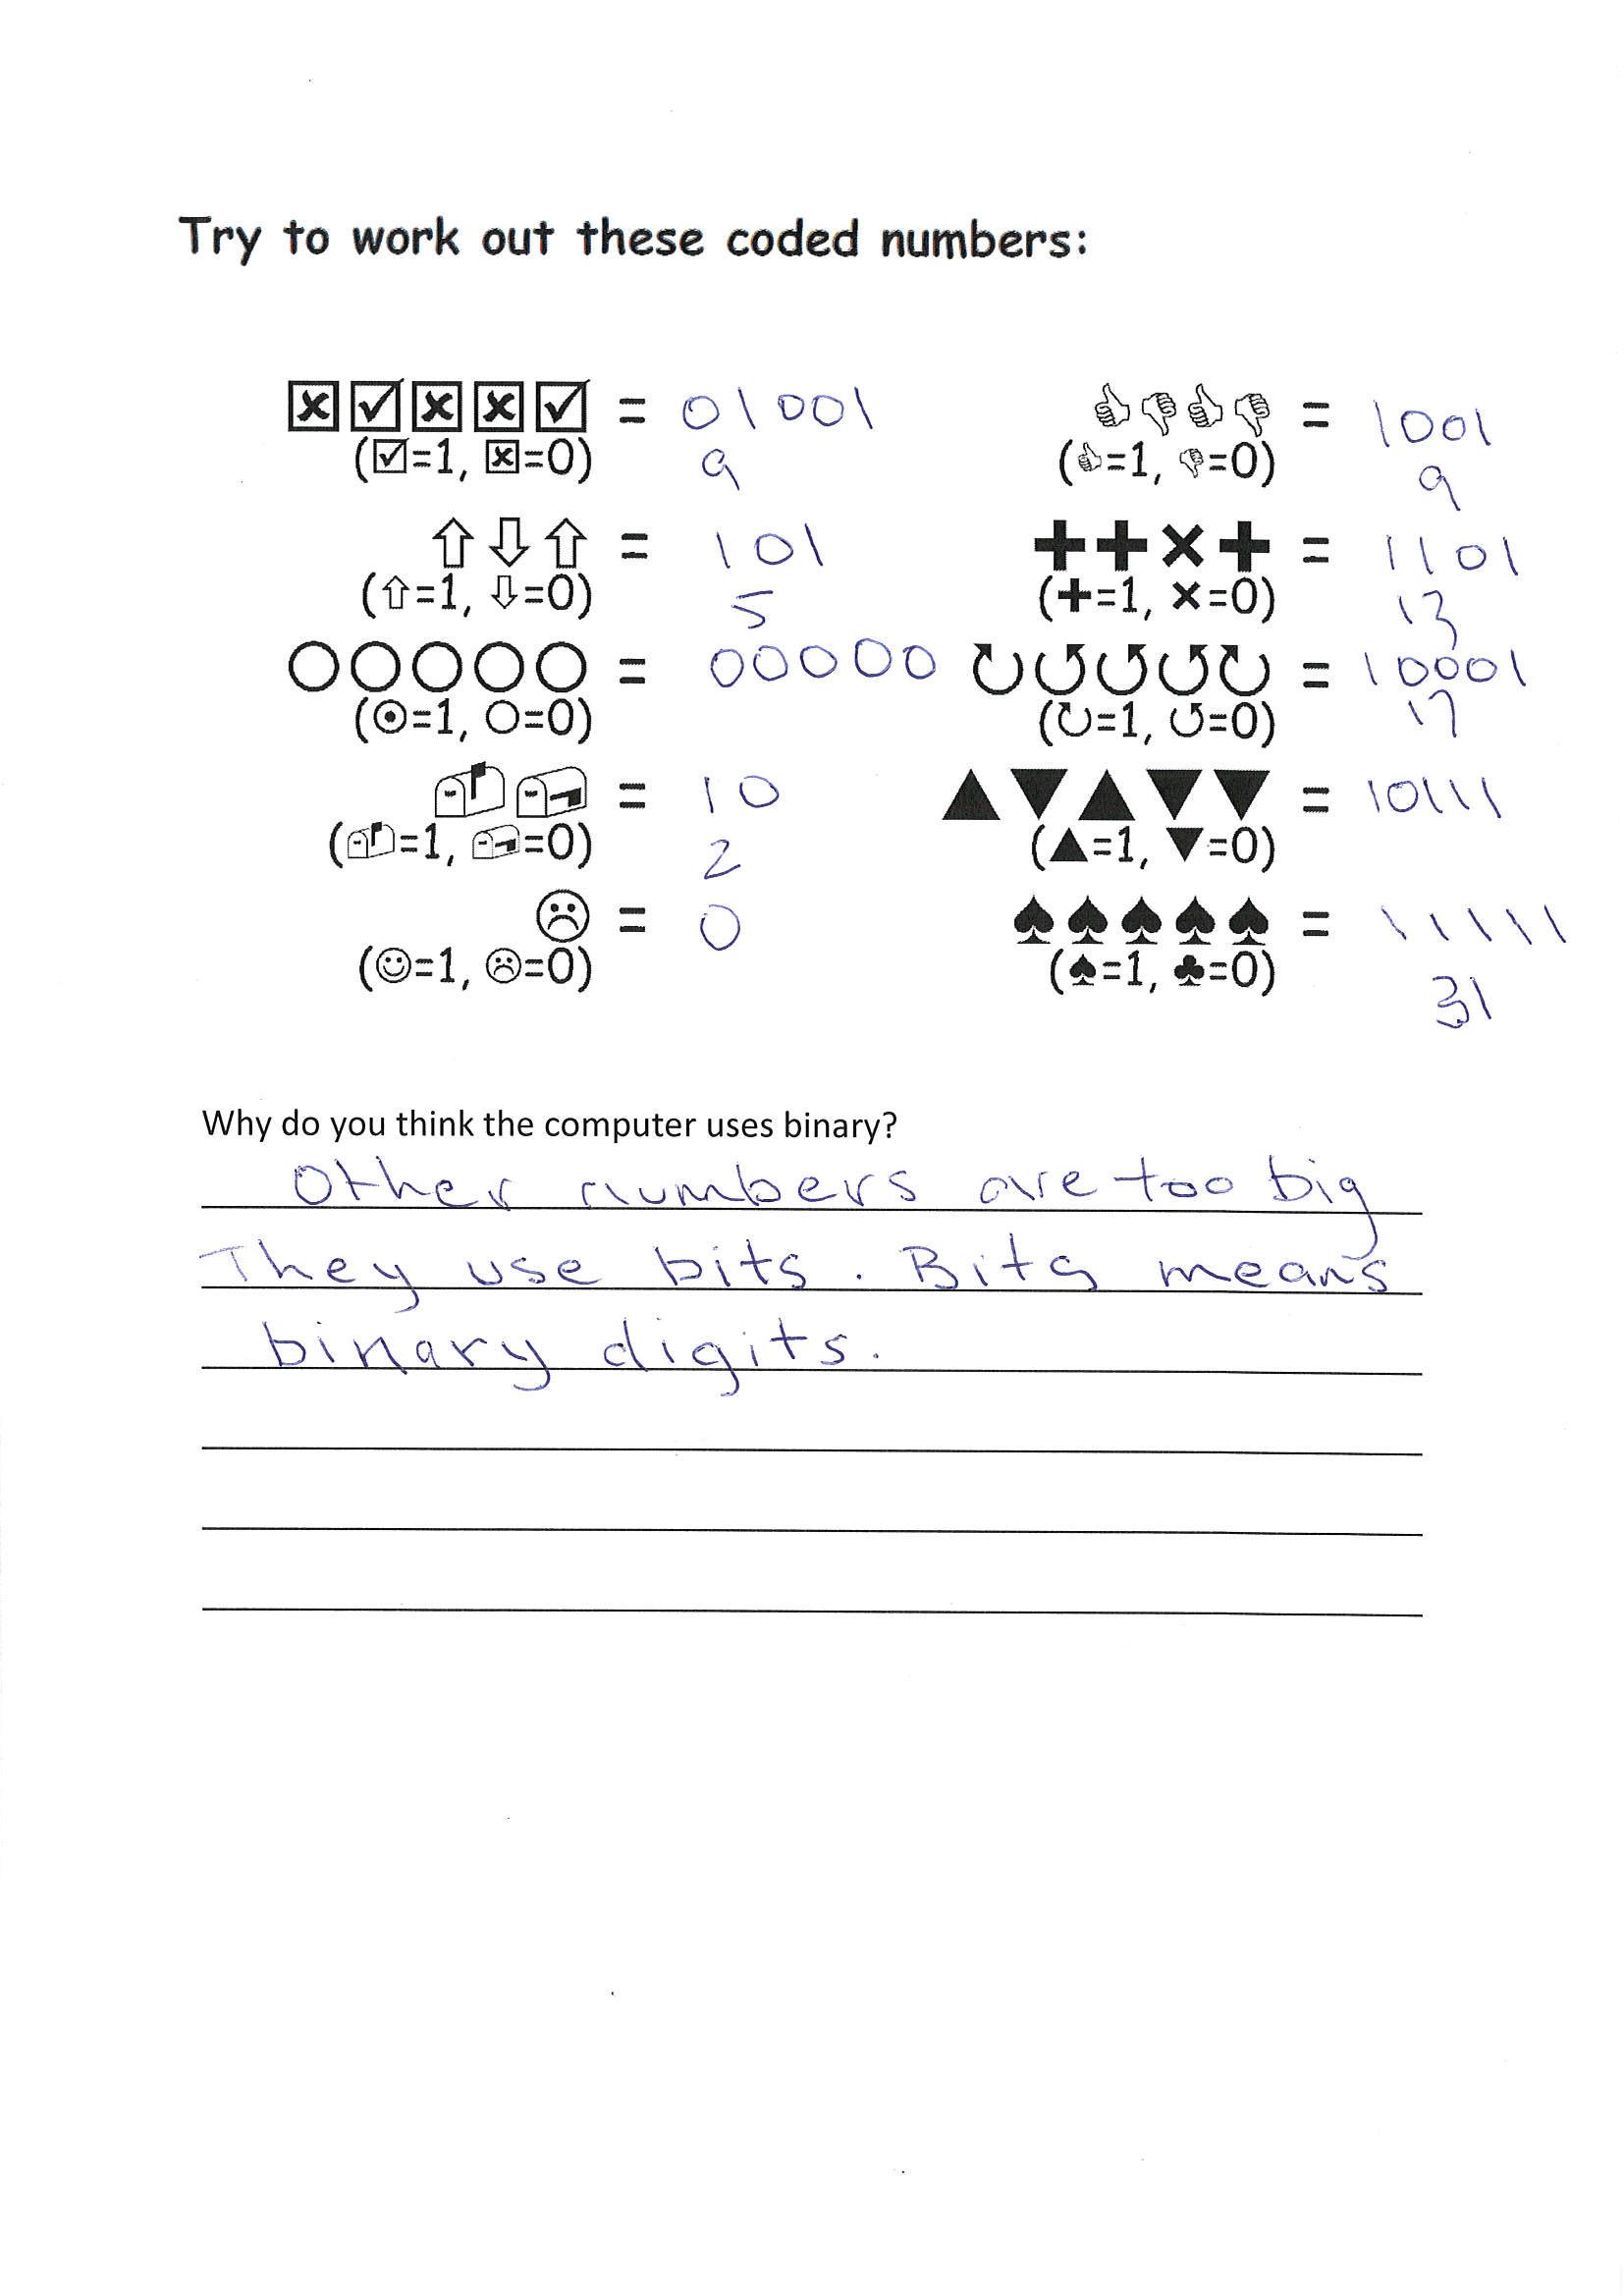 Try to work out these coded numbers:
= 01001
(☑=1, ☒=0)
9
= 1001
(👍=1, 👎=0)
9
= 101
(⇧=1, ⇩=0)
5
= 1101
(+=1, ×=0)
13
= 00000
(☉=1, ○=0)
= 10001
(↻=1, ↺=0)
17
= 10
(📫=1, 📪=0)
2
= 10111
(▲=1, ▼=0)
= 0
(☺=1, ☹=0)
= 11111
(♠=1, ♣=0)
31
Why do you think the computer uses binary?
Other numbers are too big
They use bits. Bits means
binary digits.